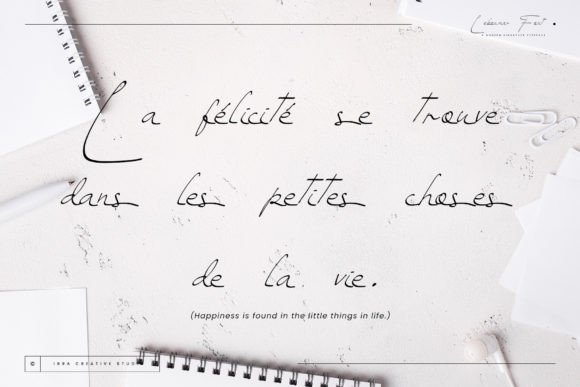 Font
MODERN SIGNATURE TYPEFACE
La félicité se trouve
dans les petites choses
de la vie.
(Happiness is found in the little things in life.)
© IBRA CREATIVE STUD